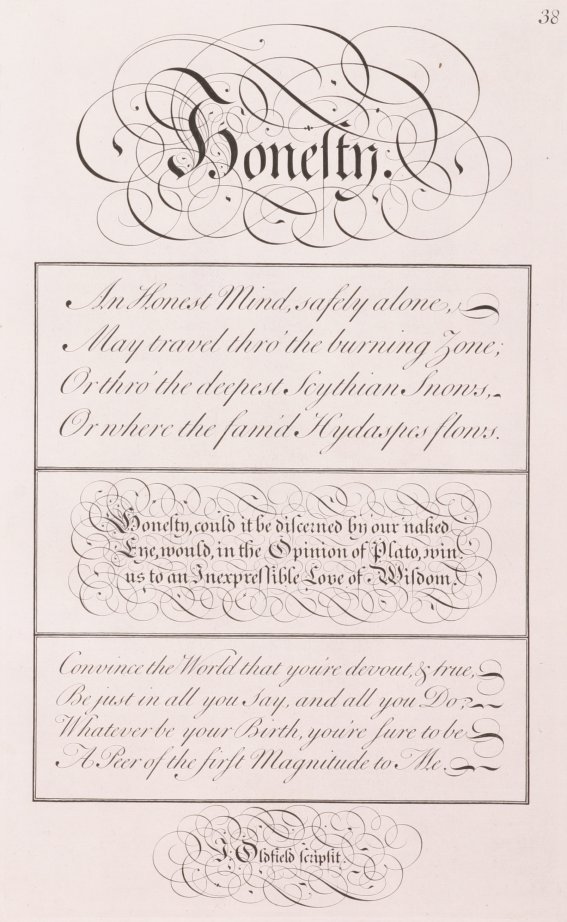 38
Honeſty.
An Honest Mind, safely alone,
May travel thro' the burning Zone;
Or thro' the deepest Scythian Snows,
Or where the fam'd Hydaspes flows.
Honeſty, could it be diſcerned by our naked
Eye, would, in the Opinion of Plato, win
us to an Inexpreſſible Love of Wiſdom.
Convince the World that you're devout, & true,
Be just in all you Say, and all you Do;
Whatever be your Birth, you're ſure to be
A Peer of the firſt Magnitude to Me.
J: Oldfield ſcripſit